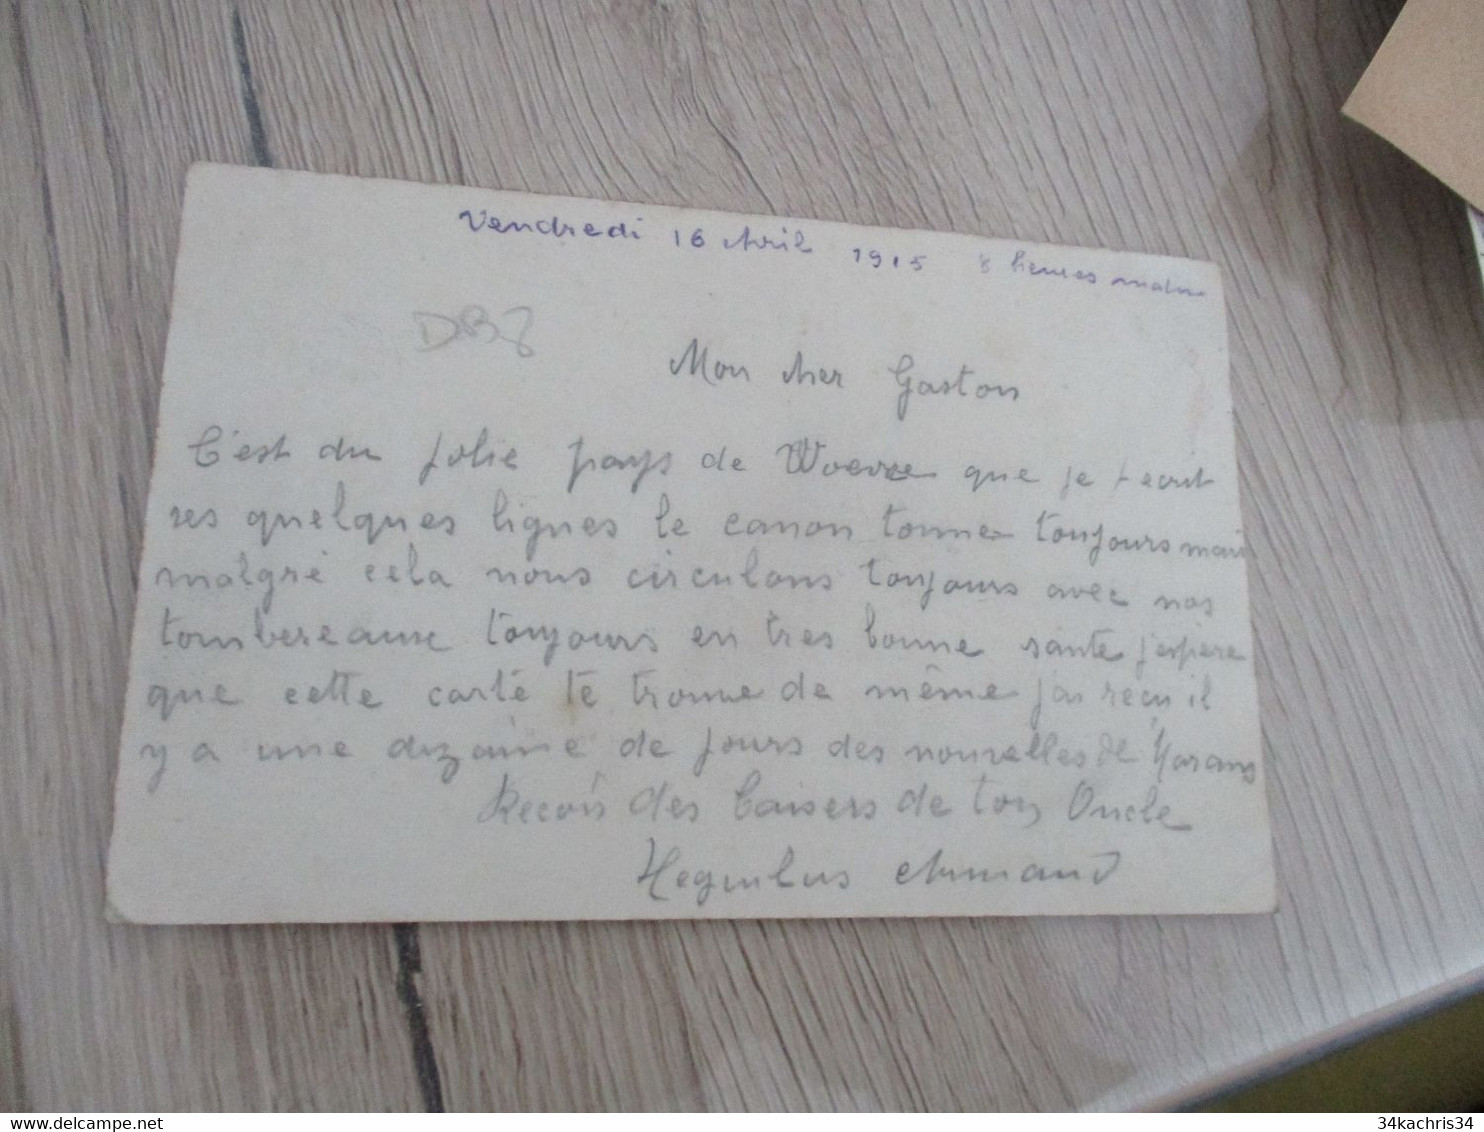 Vendredi 16 Avril 1915 8 heures matin
DB8
Mon cher Gaston
C'est du jolie pays de Woevre que je t ecrit
ses quelques lignes le canon tonne toujours mais
malgré cela nous circulons toujours avec nos
tombereause toujours en tres bonne sante j'espere
que cette carte te trouve de même j'ai reçu il
y a une dizaine de jours des nouvelles de Marans
Recois des baisers de ton Oncle
Armand
34kachris34